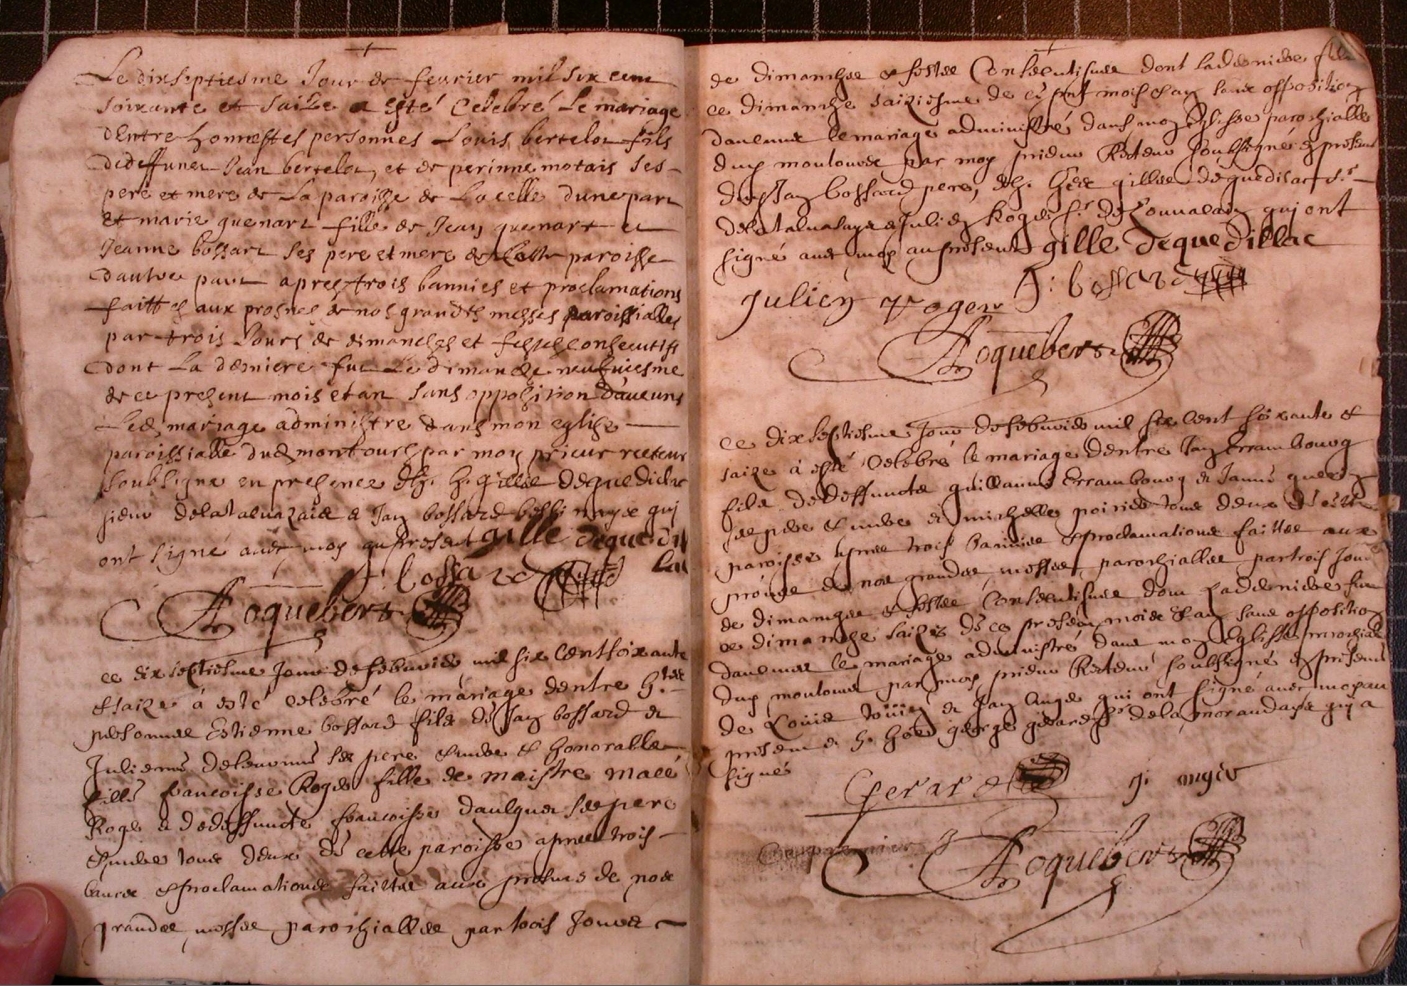 Le dixseptiesme Jour de fevrier mil six cent
soixante et saize a esté Celebré Le mariage
dEntre honnestes personnes Louis bertelot fils
de deffunct Jean bertelot, et de perinne motais ses
pere et mere de La paroisse de Lacelle dune part
et marie guenart fille de Jean guenart et
Jeanne bossart ses pere et mere de cette paroisse
dautre part apres trois bannies et proclamations
faittes aux prosnes de nos grandes messes paroissialles
par trois Jours de dimanches et festes consecutifs
dont La derniere fut Le dimanche neufviesme
de ce present mois et an sans opposition daucuns
Led mariage administre dans mon eglise
paroissialle dud montours par moy prieur recteur
soubsigne en presence de h. h. gille dequedillac
sieur delatalvazaie & Jan bossard qui
ont signé avec moy au present gille dequedil
lac
J: bossard
Roquebert
ce dix septiesme Jour de febvrier mil six Cent soixante
et saize à esté celebré le mariage dentre h.
personnes Estienne bossard fils de Jan bossard et
Julienne ses pere et mere et honorable
fille francoisse Roger fille de maistre macé
Roger & de deffuncte francoisse daulguer ses pere
et mere tous deux de cette paroisse apres trois
bannies et proclamations faittes aux prosnes de nos
grandes messes parochialles par trois Jours
de dimanches et festes Consecutifves dont la derniere fut
ce dimanche saiziesme de ce pnt mois et an sans opposition
daucuns le mariage administré dans moy Eglisse parochialle
dud montours par moy prieur Recteur soubsigné En presence
de Jan bossard pere, de h. h. gilles dequedillac sr
de latalvasaye & Julien Roger sr de qui ont
signé avec moy au present gille dequedillac
Julien roger J: bossard
Roquebert
ce dix septiesme Jour de febvrier mil six Cent soixante et
saize à esté Celebré le mariage dentre Jan Erambourg
fils de deffuncts guillaume Erambourg & Janne
ses pere et mere & michelle poirier tous deux de cette
paroisse apres trois bannies et proclamations faittes aux
prosnes de nos grandes messes parochialles par trois Jours
de dimanches et festes Consecutifves dont la derniere fut
ce dimanche saize de ce present mois et an sans opposition
daucuns le mariage administré dans moy Eglisse parochialle
dud montours par moy prieur Recteur soubsigné En presence
de Louis & Jan Anger qui ont signé avec moy au
present & h. h. georges gerard sr de la morandaye qui a
signé
Gerard
j. anger
Roquebert